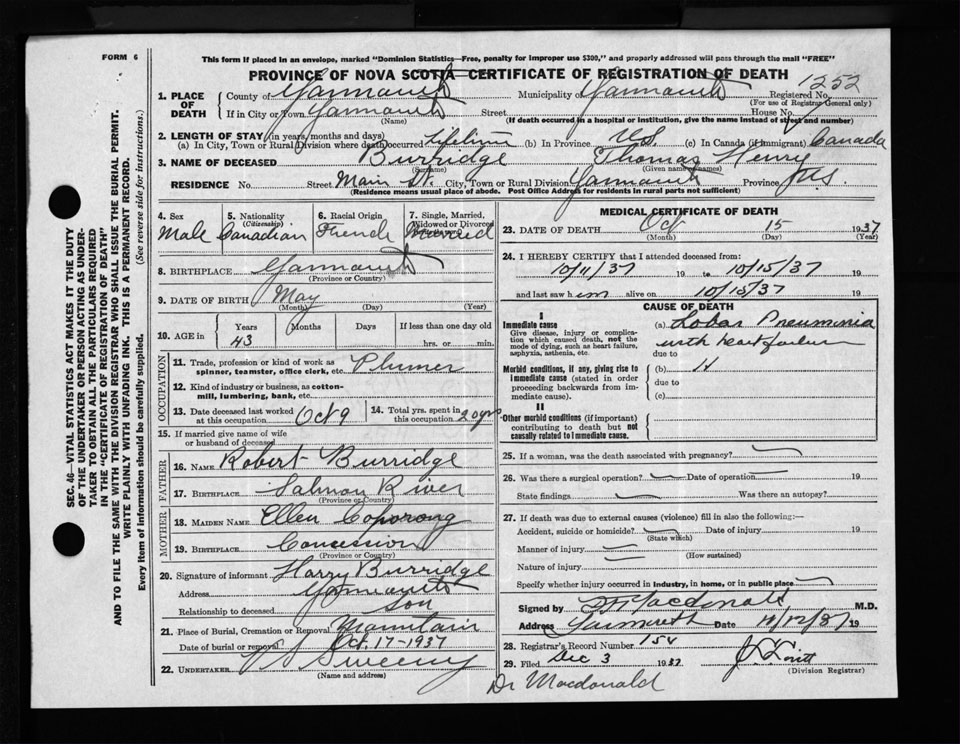 FORM 6
This form if placed in an envelope, marked "Dominion Statistics—Free, penalty for improper use $300," and properly addressed will pass through the mail "FREE"
PROVINCE OF NOVA SCOTIA—CERTIFICATE OF REGISTRATION OF DEATH
1252
1. PLACE OF DEATH County of Yarmouth Municipality of Yarmouth Registered No.
(For use of Registrar General only)
If in City or Town Yarmouth Street House No.
(Name) (If death occurred in a hospital or institution, give the name instead of street and number)
2. LENGTH OF STAY (in years, months and days)
(a) In City, Town or Rural Division where death occurred Lifetime (b) In Province (c) In Canada (if immigrant) Canada
3. NAME OF DECEASED Burridge Thomas Henry
(Surname) (Given name or names)
RESIDENCE No. Street Main St. City, Town or Rural Division Yarmouth Province N.S.
(Residence means usual place of abode. Post Office Address for residents in rural parts not sufficient)
4. Sex Male
5. Nationality (Citizenship) Canadian
6. Racial Origin French
7. Single, Married, Widowed or Divorced
8. BIRTHPLACE Yarmouth
(Province or Country)
9. DATE OF BIRTH May
(Month) (Day) (Year)
10. AGE in Years Months Days If less than one day old
43 hrs. or min.
OCCUPATION
11. Trade, profession or kind of work as spinner, teamster, office clerk, etc. Plumer
12. Kind of industry or business, as cotton-mill, lumbering, bank, etc.
13. Date deceased last worked at this occupation Oct 9
14. Total yrs. spent in this occupation 20 yrs
15. If married give name of wife or husband of deceased
FATHER
16. NAME Robert Burridge
17. BIRTHPLACE Salmon River
(Province or Country)
MOTHER
18. MAIDEN NAME Ellen
19. BIRTHPLACE Concession
(Province or Country)
20. Signature of informant Harry Burridge
Address Yarmouth
Relationship to deceased son
21. Place of Burial, Cremation or Removal Mountain
Date of burial or removal Oct. 17-1937
22. UNDERTAKER Sweeny
(Name and address)
MEDICAL CERTIFICATE OF DEATH
23. DATE OF DEATH Oct 15 1937
(Month) (Day) (Year)
24. I HEREBY CERTIFY that I attended deceased from:
10/11/37 19 to 10/15/37 19
and last saw him alive on 10/15/37 19
CAUSE OF DEATH
I
Immediate cause
Give disease, injury or complication which caused death, not the mode of dying, such as heart failure, asphyxia, asthenia, etc.
(a) Lobar Pneumonia
with heart failure
due to
Morbid conditions, if any, giving rise to immediate cause (stated in order proceeding backwards from immediate cause).
(b)
due to
(c)
II
Other morbid conditions (if important) contributing to death but not causally related to immediate cause.
25. If a woman, was the death associated with pregnancy?
26. Was there a surgical operation? Date of operation 19
State findings Was there an autopsy?
27. If death was due to external causes (violence) fill in also the following:—
Accident, suicide or homicide? Date of injury 19
(State which)
Manner of injury
(How sustained)
Nature of injury
Specify whether injury occurred in industry, in home, or in public place
Signed by Macdonald M.D.
Address Yarmouth Date 19
28. Registrar's Record Number 154
29. Filed Dec 3 1937
(Division Registrar)
Dr Macdonald
SEC. 46—VITAL STATISTICS ACT MAKES IT THE DUTY
OF THE UNDERTAKER OR PERSON ACTING AS UNDER-
TAKER TO OBTAIN ALL THE PARTICULARS REQUIRED
IN THE "CERTIFICATE OF REGISTRATION OF DEATH"
AND TO FILE THE SAME WITH THE DIVISION REGISTRAR WHO SHALL ISSUE THE BURIAL PERMIT.
WRITE PLAINLY WITH UNFADING INK. THIS IS A PERMANENT RECORD.
Every item of information should be carefully supplied. (See reverse side for instructions.)